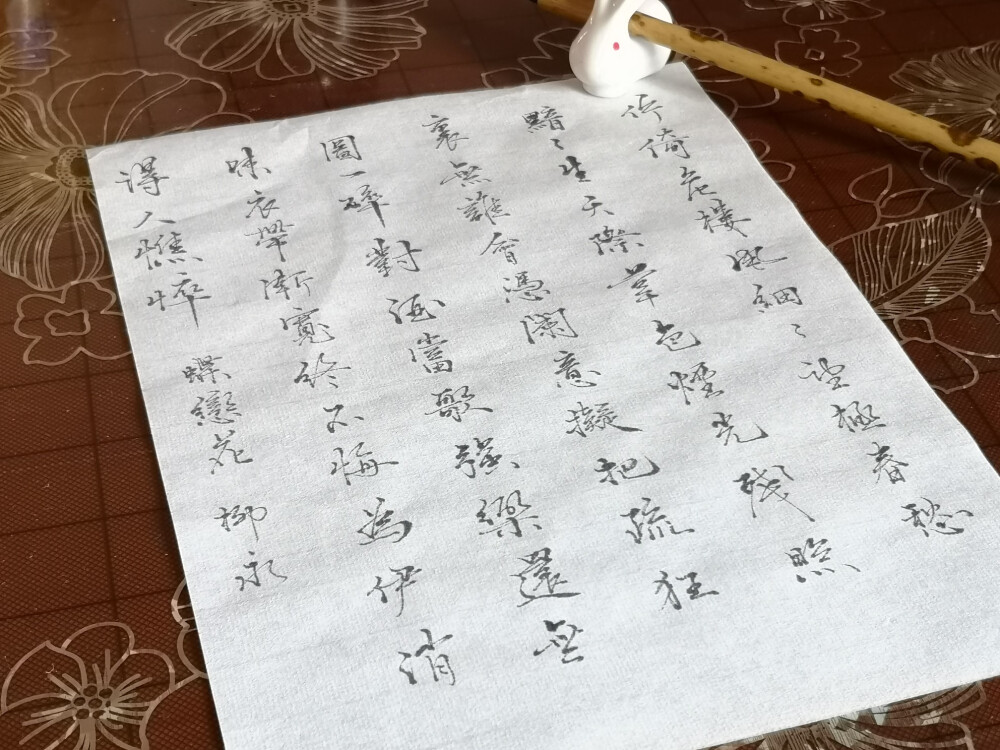 佇倚危樓風細〻望極春愁
黯〻生天際草色煙光殘照
裏無誰會憑闌意擬把疏狂
圖一醉對酒當歌強樂還無
味衣帶漸寬終不悔為伊消
得人憔悴 蝶戀花 柳永